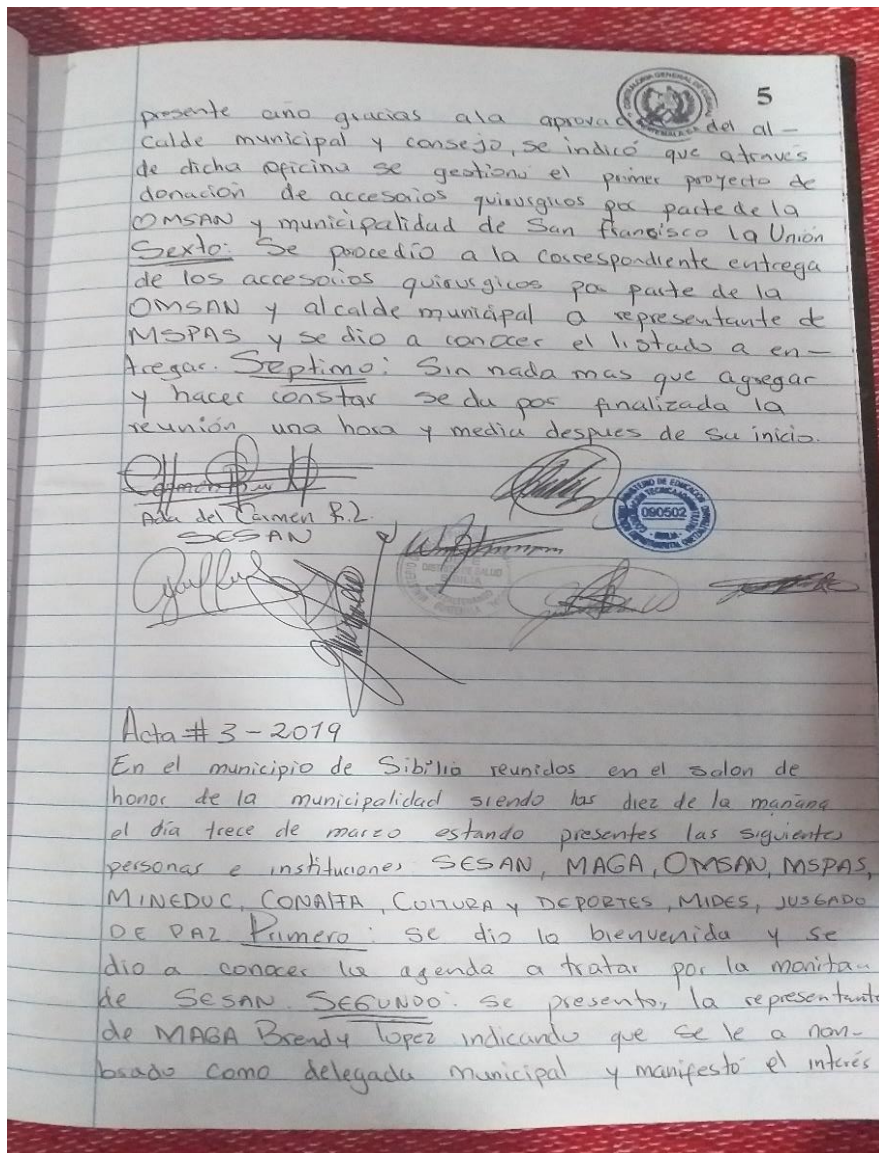 5
presente año gracias ala aprovac del al-
calde municipal y consejo, se indicó que atraves
de dicha oficina se gestiono el primer proyecto de
donación de accesorios quirusgicos por parte de la
OMSAN y municipalidad de San francisco la Unión
Sexto: Se procedio a la correspondiente entrega
de los accesorios quirusgicos por parte de la
OMSAN y alcalde municipal a representante de
MSPAS y se dio a conocer el listado a en-
tregar. Septimo: Sin nada mas que agregar
y hacer constar se da por finalizada la
reunión una hora y media despues de su inicio.
Ada del Carmen R.L.
SESAN
MINISTERIO DE EDUCACION
090502
DISTRITO DE SALUD
SIBILIA
Acta # 3-2019
En el municipio de Sibilia reunidos en el salon de
honor de la municipalidad siendo las diez de la mañana
el día trece de marzo estando presentes las siguientes
personas e instituciones SESAN, MAGA, OMSAN, MSPAS,
MINEDUC, CONALFA, CULTURA Y DEPORTES, MIDES, JUSGADO
DE PAZ Primero: se dio la bienvenida y se
dio a conocer la agenda a tratar por la monitora
de SESAN. SEGUNDO: se presento, la representante
de MAGA Brendy Lopez indicando que se le a nom-
brado como delegada municipal y manifestó el interés